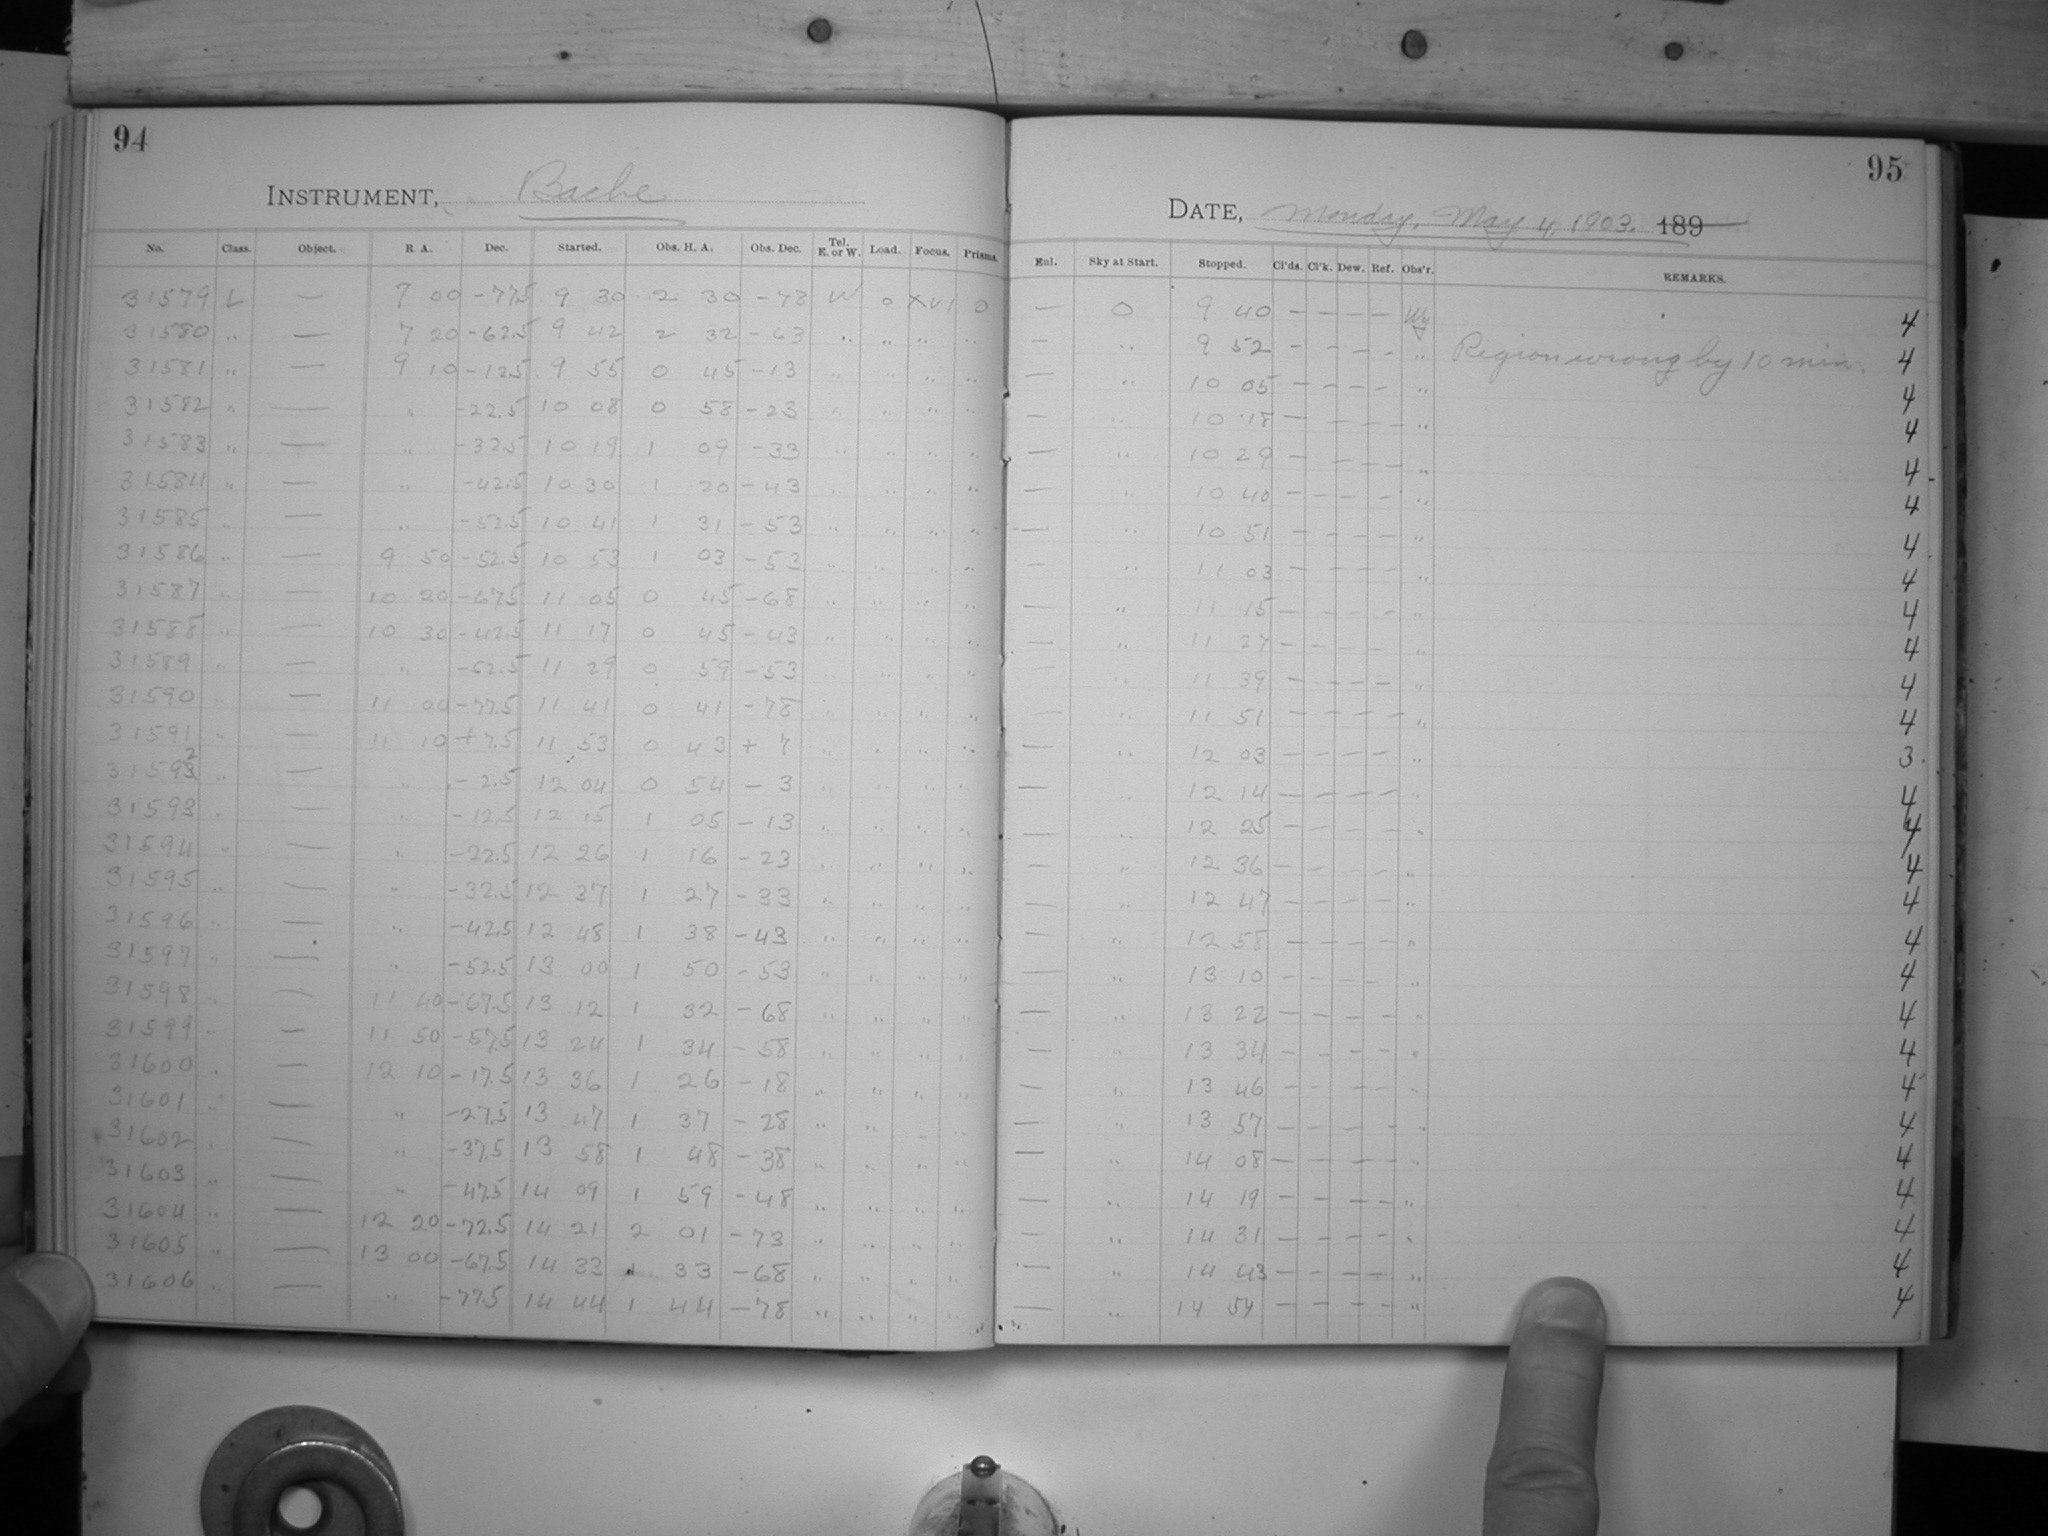 94
INSTRUMENT, Bache
No. Class. Object. R. A. Dec. Started. Obs. H. A. Obs. Dec. Tel. E. or W. Load. Focus. Prisms.
31579 L — 7 00 -77.5 9 30 2 30 -78 W 0 XVI 0
31580 " — 7 20 -62.5 9 42 2 32 -63 " " " "
31581 " — 9 10 -12.5 9 55 0 45 -13 " " " "
31582 " — " -22.5 10 08 0 58 -23 " " " "
31583 " — " -32.5 10 19 1 09 -33 " " " "
31584 " — " -42.5 10 30 1 20 -43 " " " "
31585 " — " -52.5 10 41 1 31 -53 " " " "
31586 " — 9 50 -52.5 10 53 1 03 -53 " " " "
31587 " — 10 20 -67.5 11 05 0 45 -68 " " " "
31588 " — 10 30 -42.5 11 17 0 45 -43 " " " "
31589 " — " -52.5 11 29 0 59 -53 " " " "
31590 " — 11 00 -77.5 11 41 0 41 -78 " " " "
31591 " — 11 10 +7.5 11 53 0 43 +7 " " " "
31592 " — " -2.5 12 04 0 54 -3 " " " "
31593 " — " -12.5 12 15 1 05 -13 " " " "
31594 " — " -22.5 12 26 1 16 -23 " " " "
31595 " — " -32.5 12 37 1 27 -33 " " " "
31596 " — " -42.5 12 48 1 38 -43 " " " "
31597 " — " -52.5 13 00 1 50 -53 " " " "
31598 " — 11 40 -67.5 13 12 1 32 -68 " " " "
31599 " — 11 50 -57.5 13 24 1 34 -58 " " " "
31600 " — 12 10 -17.5 13 36 1 26 -18 " " " "
31601 " — " -27.5 13 47 1 37 -28 " " " "
31602 " — " -37.5 13 58 1 48 -38 " " " "
31603 " — " -47.5 14 09 1 59 -48 " " " "
31604 " — 12 20 -72.5 14 21 2 01 -73 " " " "
31605 " — 13 00 -67.5 14 33 1 33 -68 " " " "
31606 " — " -77.5 14 44 1 44 -78 " " " "
95
DATE, Monday, May 4, 1903. 189
Eol. Sky at Start. Stopped. Cl'ds. Cl'k. Dew. Ref. Obs'r. REMARKS.
— 0 9 40 — — — — 4
— " 9 52 — — — — " Region wrong by 10 min. 4
— " 10 05 — — — — " 4
— " 10 18 — — — — " 4
— " 10 29 — — — — " 4
— " 10 40 — — — — " 4
— " 10 51 — — — — " 4
— " 11 03 — — — — " 4
— " 11 15 — — — — " 4
— " 11 27 — — — — " 4
— " 11 39 — — — — " 4
— " 11 51 — — — — " 4
— " 12 03 — — — — " 3
— " 12 14 — — — — " 4
— " 12 25 — — — — " 4
— " 12 36 — — — — " 4
— " 12 47 — — — — " 4
— " 12 58 — — — — " 4
— " 13 10 — — — — " 4
— " 13 22 — — — — " 4
— " 13 34 — — — — " 4
— " 13 46 — — — — " 4
— " 13 57 — — — — " 4
— " 14 08 — — — — " 4
— " 14 19 — — — — " 4
— " 14 31 — — — — " 4
— " 14 43 — — — — " 4
— " 14 54 — — — — " 4